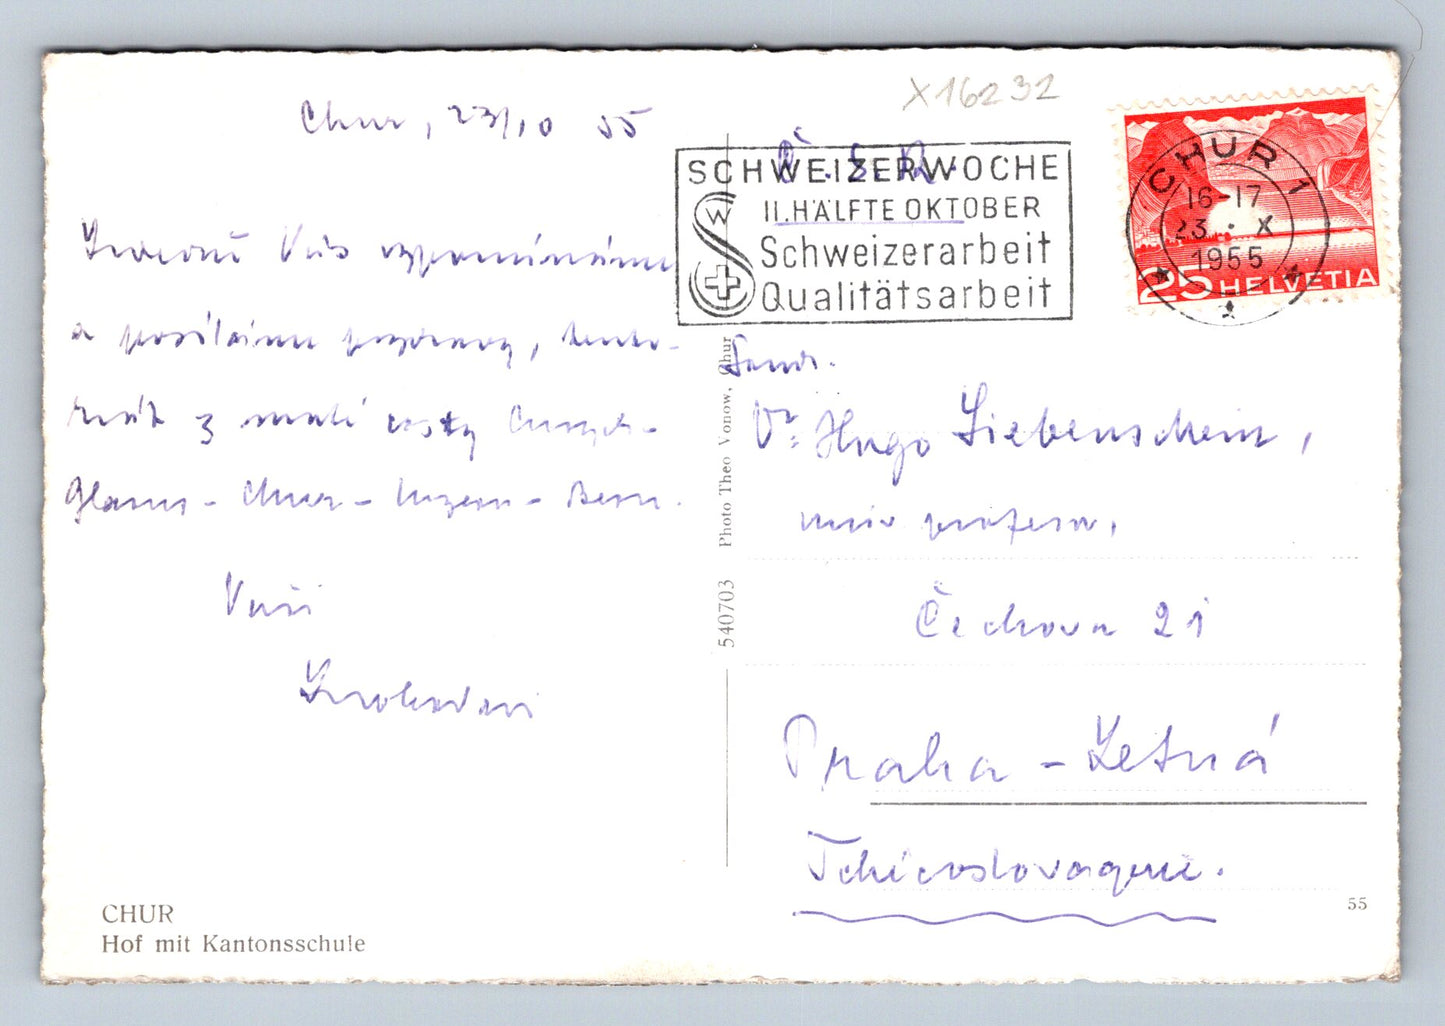 X16232
Chur, 23/10 55
Č.S.R.
SCHWEIZERWOCHE
II. HÄLFTE OKTOBER
Schweizerarbeit
Qualitätsarbeit
W
CHUR 1
16-17
23. X
1955
25 HELVETIA
Vás vzpomínáme
a posíláme pozdravy,
z malé cesty
Glarus - Chur - Luzern - Bern.
Vaši
Dr. Hugo Siebenschein,
univ. profesor,
Čechova 21
Praha - Letná
Tchécoslovaquie.
540703 Photo Theo Vonow, Chur
CHUR
Hof mit Kantonsschule
55